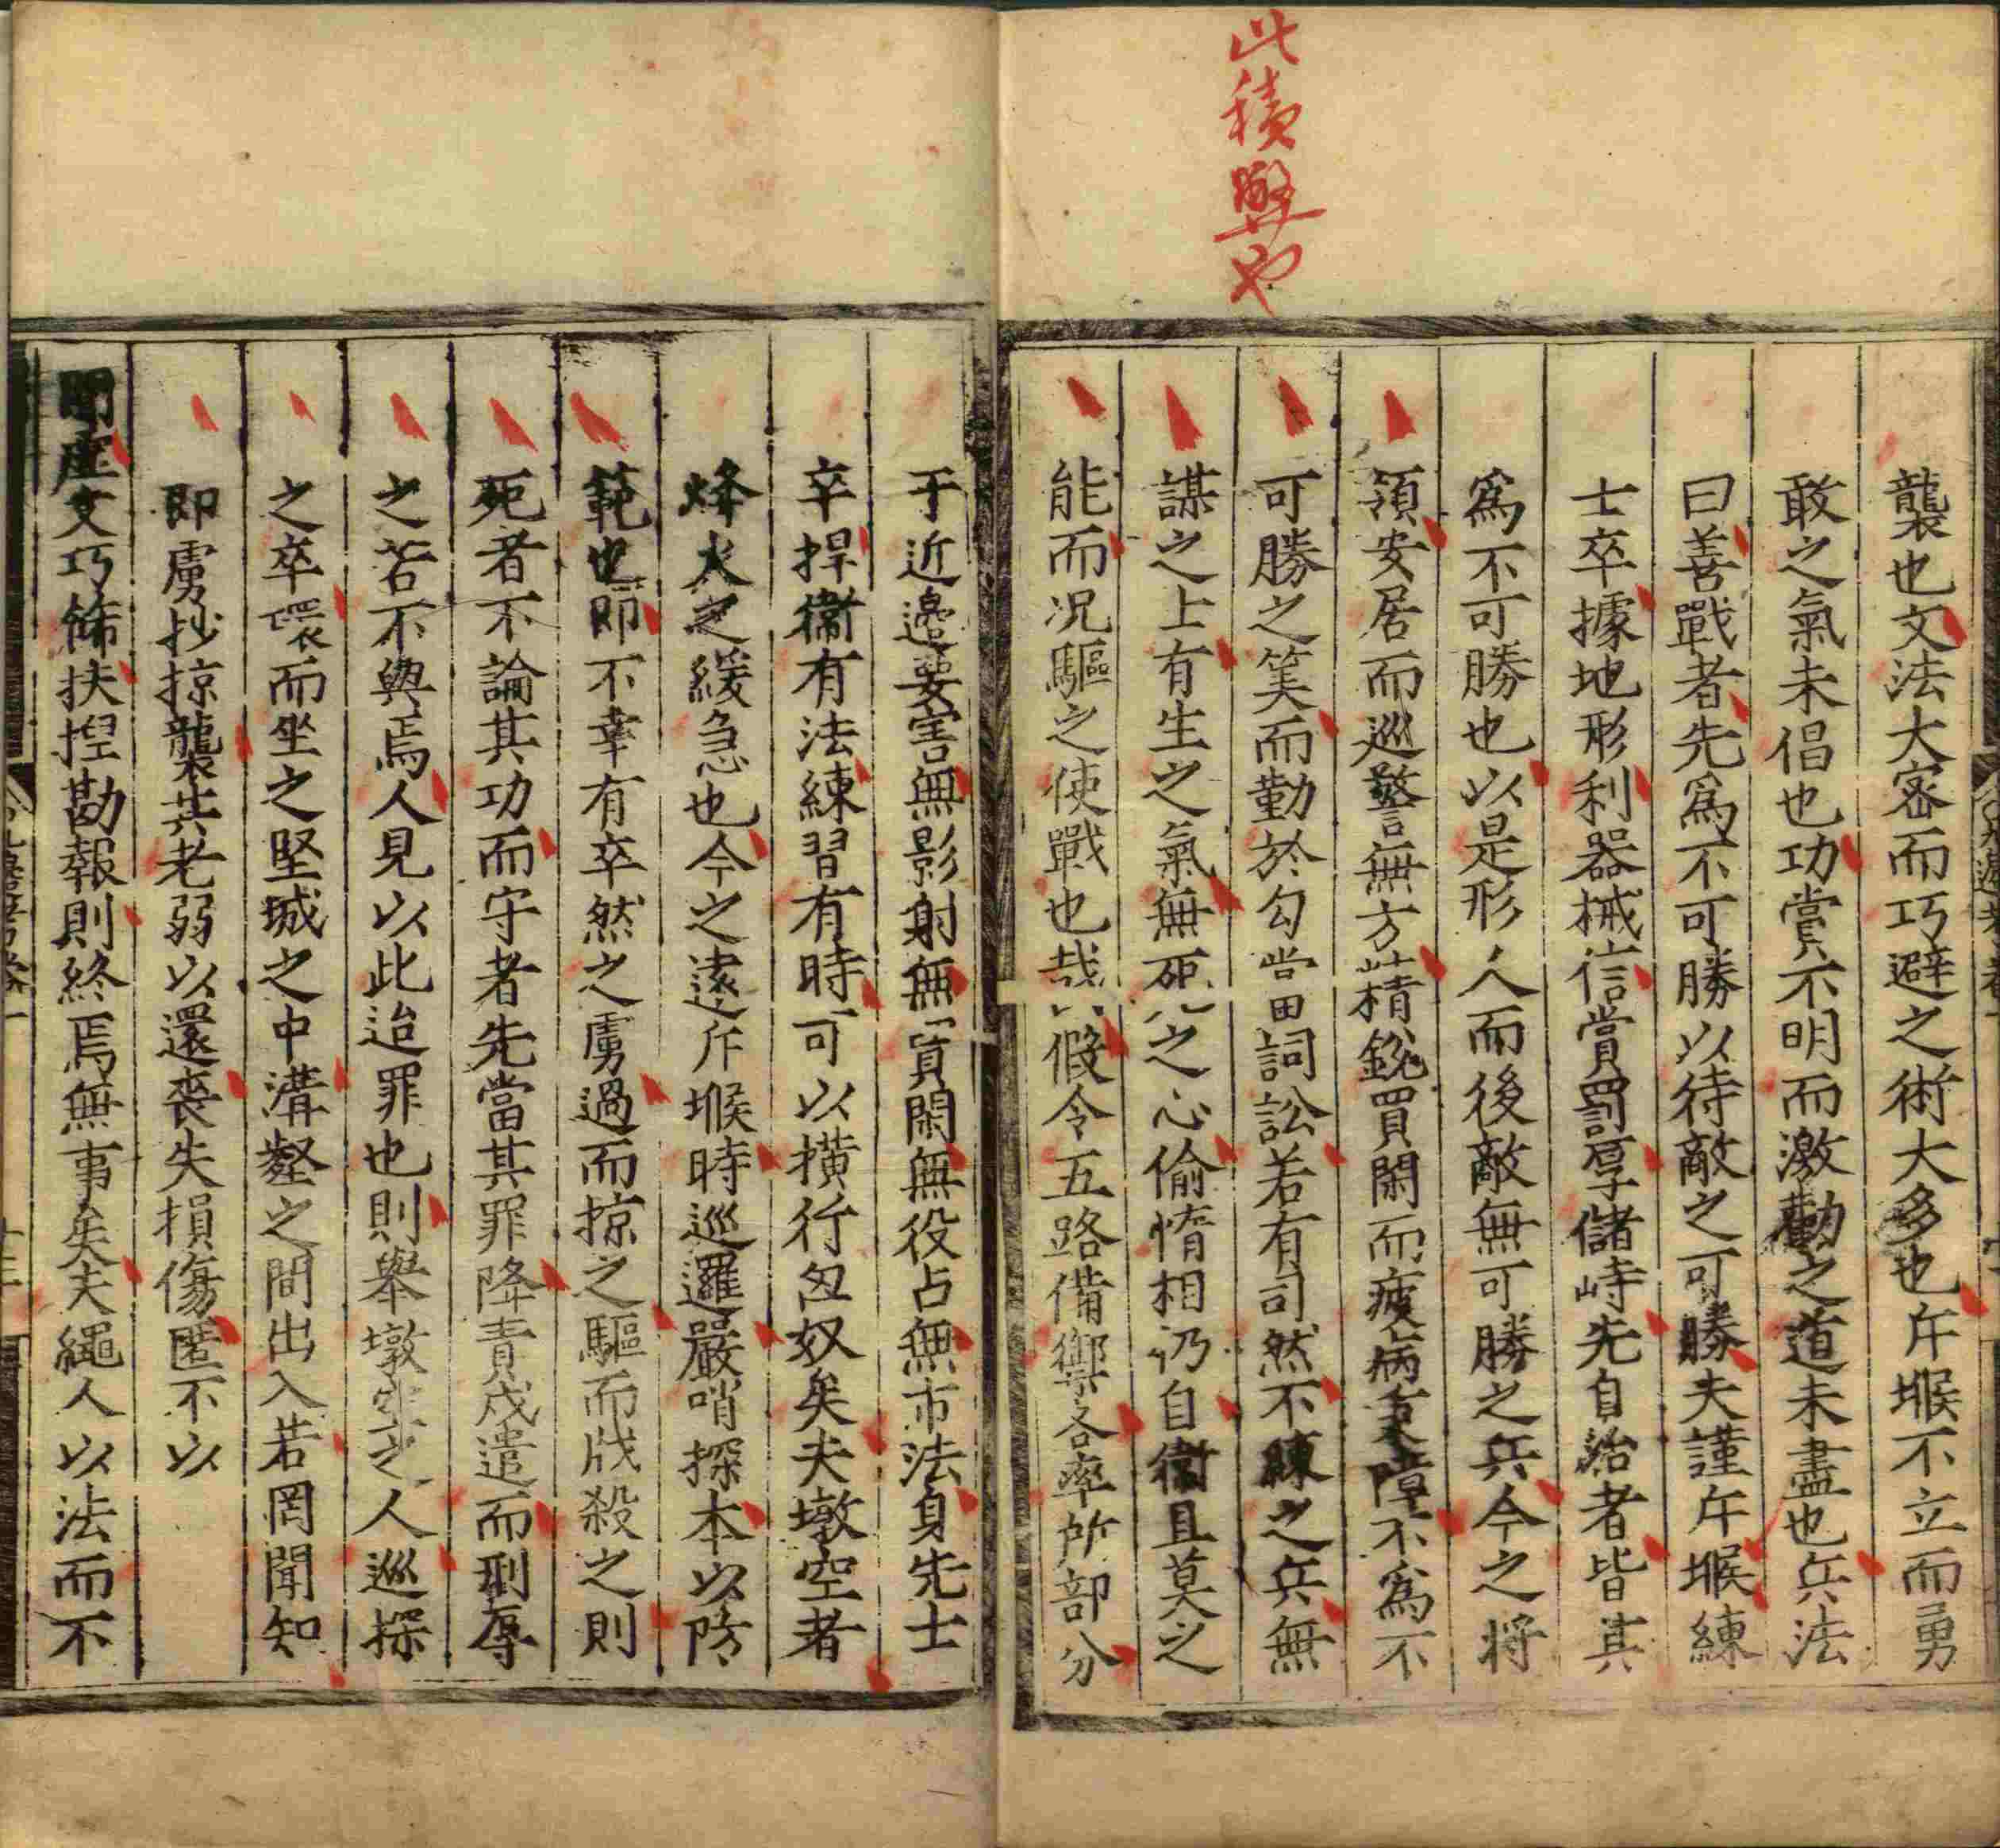 此積弊也
襲也文法大密而巧避之術大多也斥堠不立而勇
敢之氣未倡也功賞不明而激勸之道未盡也兵法
曰善戰者先爲不可勝以待敵之可勝夫謹斥堠練
士卒據地形利器械信賞罰厚儲峙先自治者皆其
爲不可勝也以是形人而後敵無可勝之兵今之將
領安居而巡警無方精銳買閑而疲病乗障不爲不
可勝之筭而勤於勾當田詞訟若有司然不練之兵無
謀之上有生之氣無死之心偷惰相仍自衞且莫之
能而况驅之使戰也哉假令五路備禦各率所部分
于近邊要害無影射無買閑無役占無市法身先士
卒捍衞有法練習有時可以横行匈奴矣夫墩空者
烽火之緩急也今之遠斥堠時巡邏嚴哨探本以防
範也即不幸有卒然之虜過而掠之驅而戕殺之則
死者不論其功而守者先當其罪降責戍遣而刑辱
之若不與焉人見以此迨罪也則舉墩之人巡探
之卒環而坐之堅城之中溝壑之間出入若罔聞知
即虜抄掠襲其老弱以還喪失損傷匿不以
明虛文巧餙扶揑勘報則終焉無事矣夫繩人以法而不